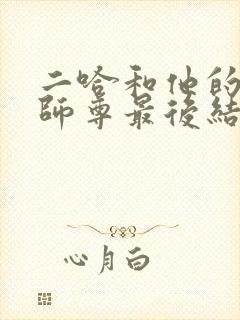 二哈和他的
師尊最後結
心月白